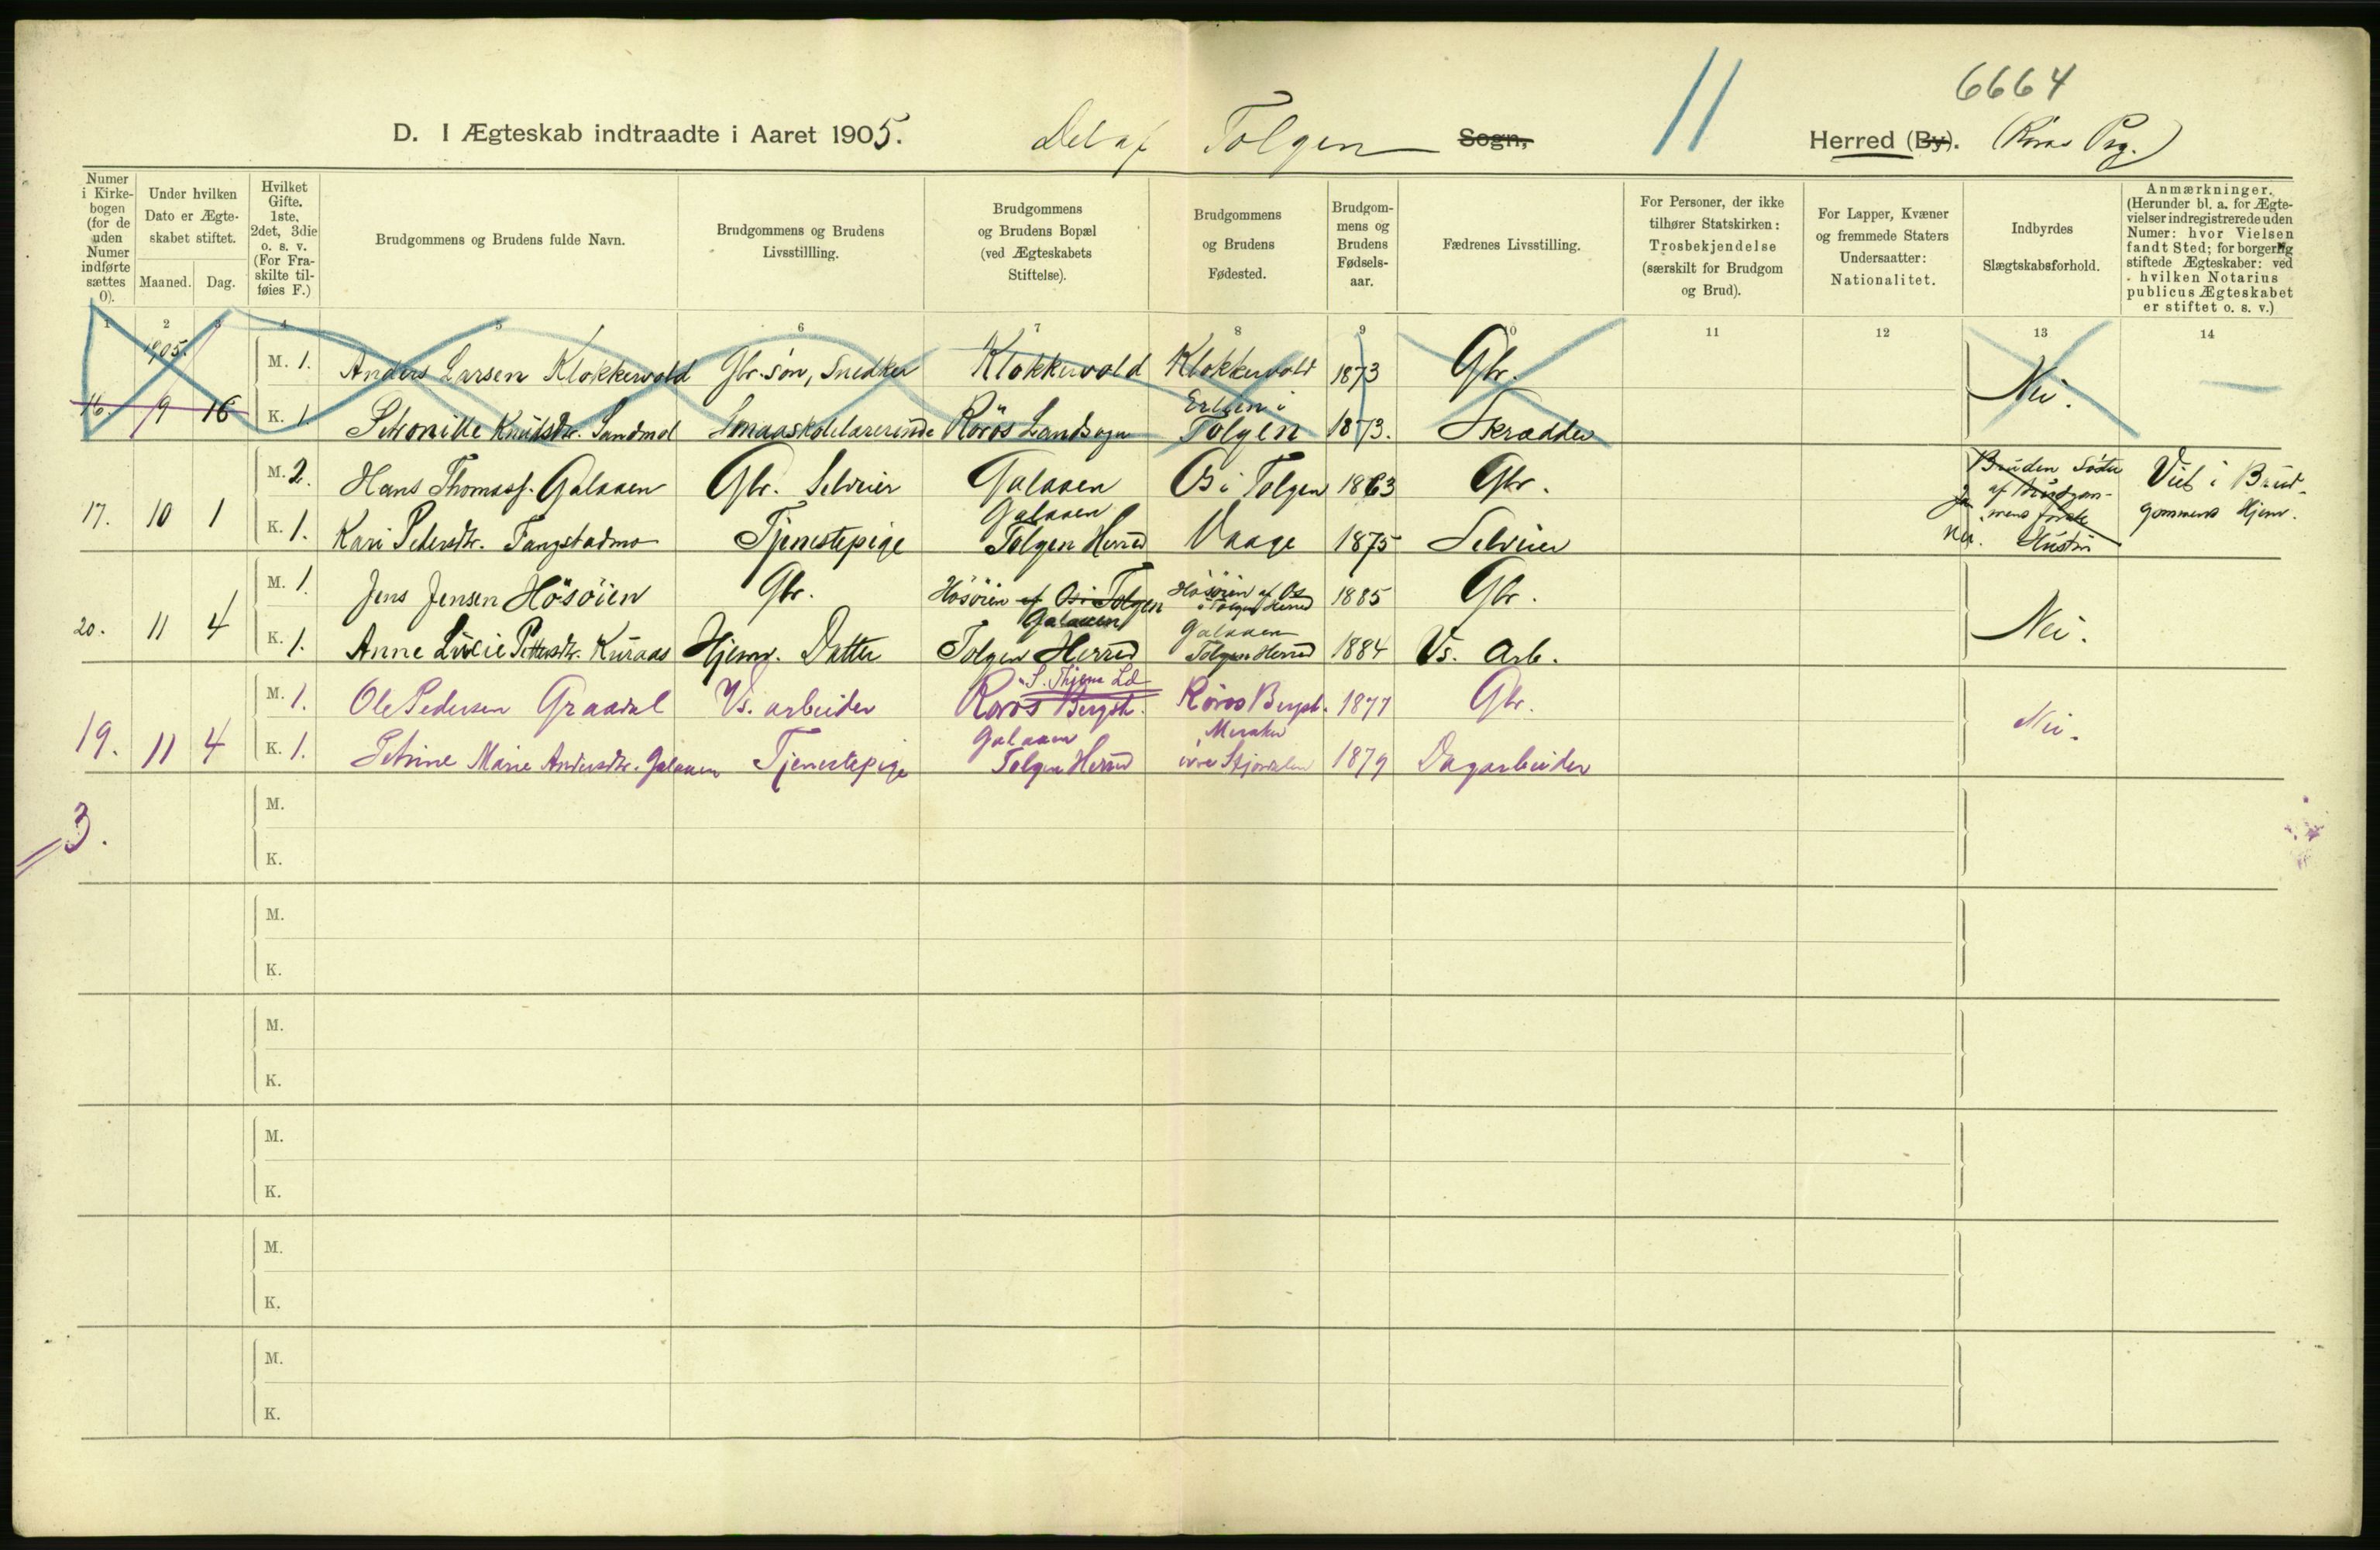 6664
11
D. I Ægteskab indtraadte i Aaret 1905. Del af Tolgen Sogn, Herred (By). (Röros Prg.)
Numer
i Kirke-
bogen
(for de
uden
Numer
indførte
sættes
0).
Under hvilken
Dato er Ægte-
skabet stiftet.
Maaned. Dag.
Hvilket
Gifte.
1ste,
2det, 3die
o. s. v.
(For Fra-
skilte til-
føies F.)
Brudgommens og Brudens fulde Navn.
Brudgommens og Brudens
Livsstillling.
Brudgommens
og Brudens Bopæl
(ved Ægteskabets
Stiftelse).
Brudgommens
og Brudens
Fødested.
Brudgom-
mens og
Brudens
Fødsels-
aar.
Fædrenes Livsstilling.
For Personer, der ikke
tilhører Statskirken:
Trosbekjendelse
(særskilt for Brudgom
og Brud).
For Lapper, Kvæner
og fremmede Staters
Undersaatter:
Nationalitet.
Indbyrdes
Slægtskabsforhold.
Anmærkninger.
(Herunder bl. a. for Ægte-
vielser indregistrerede uden
Numer: hvor Vielsen
fandt Sted; for borgerlig
stiftede Ægteskaber: ved
hvilken Notarius
publicus Ægteskabet
er stiftet o. s. v.)
1 2 3 4 5 6 7 8 9 10 11 12 13 14
1905.
M. 1. Anders Larsen Klokkervold Gbr. søn, Snedker Klokkervold Klokkervold 1873 Gbr.
Nei.
16. 9 16 K. 1. Petronille Knutsdtr. Sandmol Smaaskolelærerinde Röros Landsogn Tolgen 1873. Skrædder
M. 2. Hans Thomass. Galaaen Gbr. Selveier Galaaen Os i Tolgen 1863 Gbr.
Bruden Søster
af Brudgom-
mens første
Hustru
Nei.
Viet i Brud-
gommens Hjem.
17. 10 1 K. 1. Kari Pedersdtr. Tangstadmo Tjenestepige Galaaen
Tolgen Herred Vaage 1875 Selveier
M. 1. Jens Jensen Hösöien Gbr. Hösöien af Os i Tolgen Hösöien af Os
i Tolgen Herred 1885 Gbr.
Nei.
20. 11 4 K. 1. Anne Lucie Pettersdtr. Kuraas Hjemv. Datter Galaaen
Tolgen Herred Galaaen
Tolgen Herred 1884 Vs. Arb.
M. 1. Ole Pedersen Graadal Vs. arbeider Röros Bergst. Röros Bergst. 1877 Gbr.
Nei.
19. 11 4 K. 1. Petrine Marie Andersdtr. Galaaen Tjenestepige Galaaen
Tolgen Herred Meraker
Stjørdalen 1879 Dagarbeider
3.
M.
K.
M.
K.
M.
K.
M.
K.
M.
K.
M.
K.